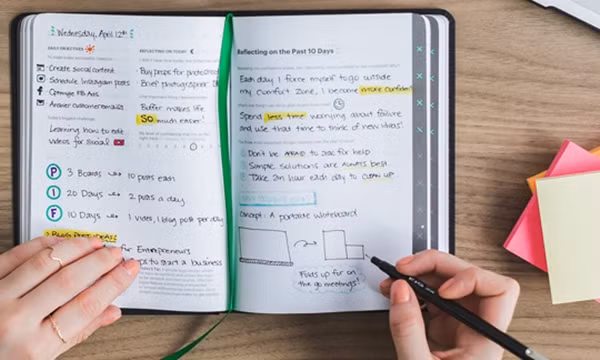 Wednesday, April 12th
DAILY OBJECTIVES
Create social content
Schedule Instagram posts
Optimize FB Ads
Answer customer emails
Learning how to edit
videos for social
P 3 Boards → 10 posts each
I 20 Days → 2 posts a day
F 10 Days → 1 video, 1 blog post per day
BLOG POST IDEAS
for Entrepreneurs
to start a business
REFLECTING ON TODAY
Buy props for photoshoot
Brief photographer
Buffer makes life
SO much easier!
Reflecting on the Past 10 Days
Each day I force myself to go outside
my comfort zone, I become more confident
Spend less time worrying about failure
and use that time to think of new ideas!
Don't be AFRAID to ask for help
Simple solutions are ALWAYS best
Take an hour each day to CLEAN UP
Concept: A portable whiteboard
Folds up for on
the go meetings!